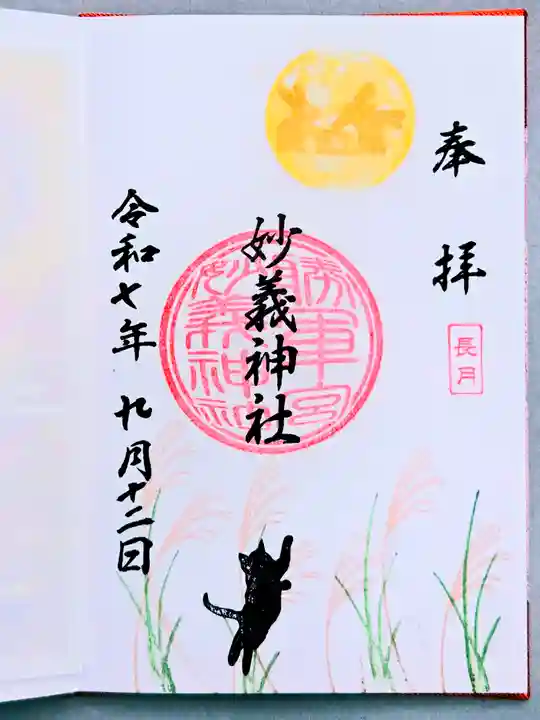 奉拝
長月
妙義神社
令和七年 九月十二日